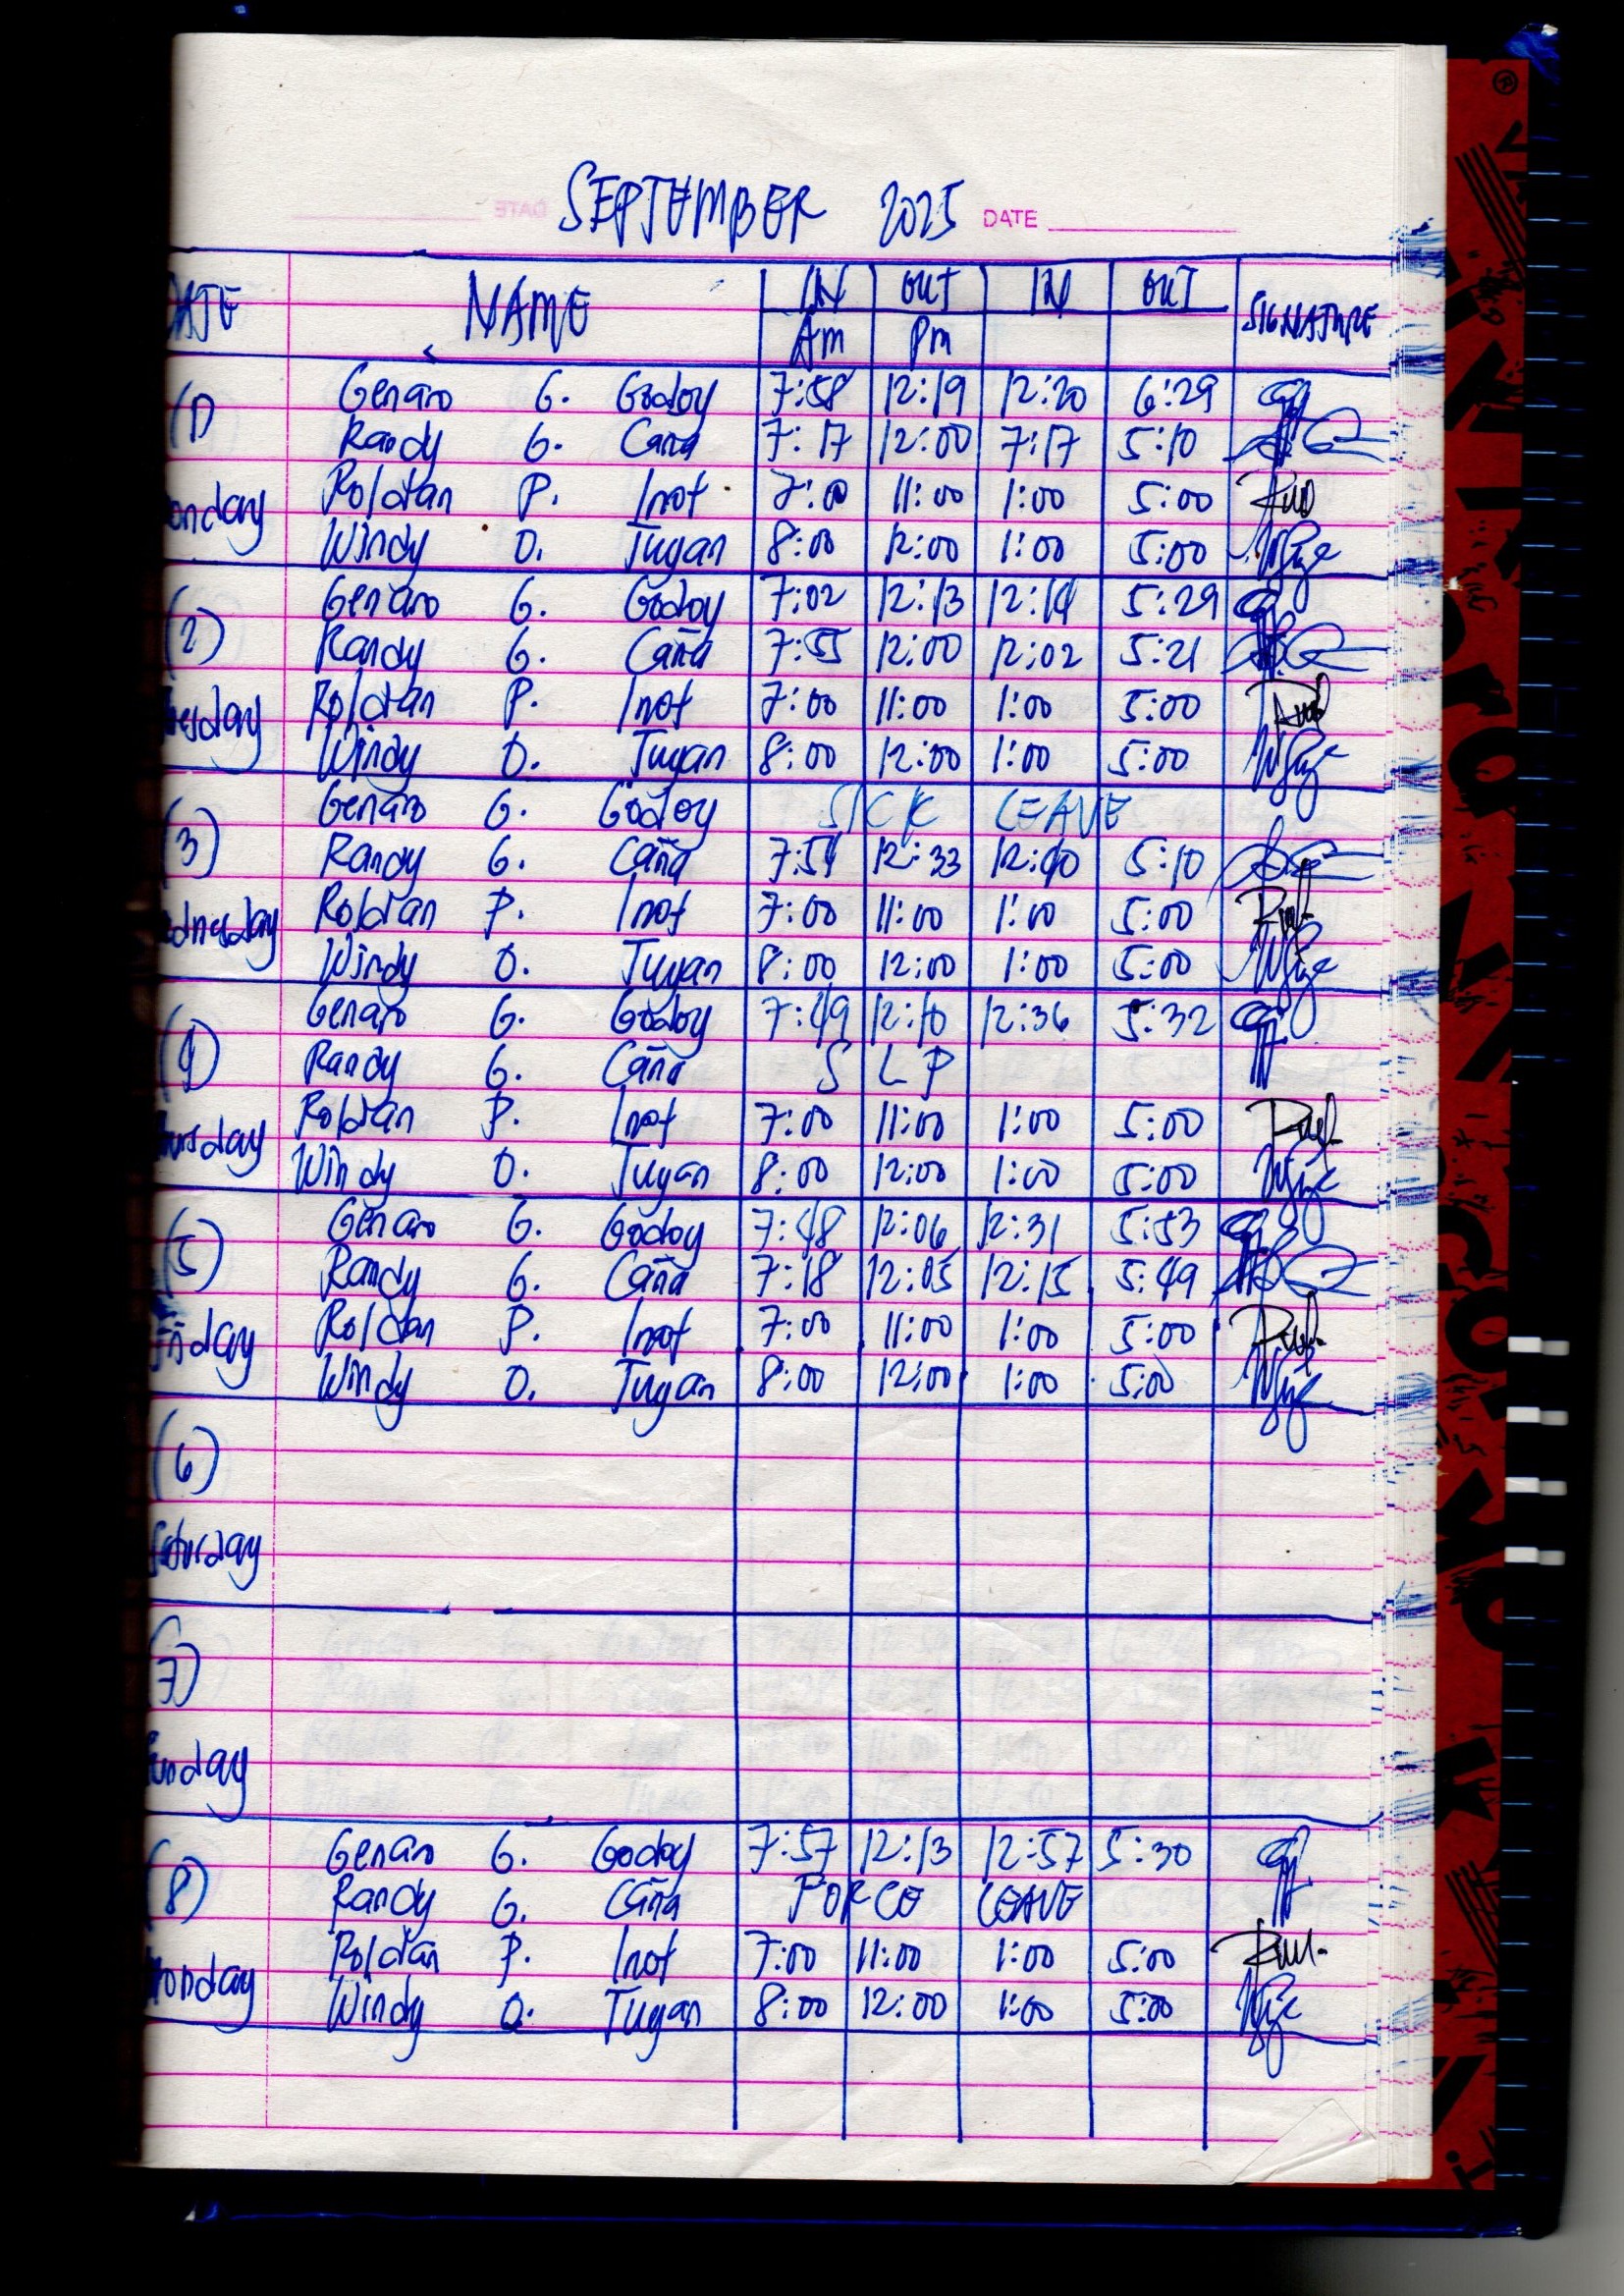 SEPTEMBER 2025 DATE
DATE NAME IN OUT IN OUT SIGNATURE
Am Pm
(1) Genaro G. Godoy 7:58 12:19 12:20 6:29
Randy G. Caña 7:17 12:00 7:17 5:10
onday Roldan P. Inot 7:00 11:00 1:00 5:00
Windy O. Tugan 8:00 12:00 1:00 5:00
(2) Genaro G. Godoy 7:02 12:13 12:14 5:29
Randy G. Caña 7:55 12:00 12:02 5:21
esday Roldan P. Inot 7:00 11:00 1:00 5:00
Windy O. Tugan 8:00 12:00 1:00 5:00
(3) Genaro G. Godoy SICK LEAVE
Randy G. Caña 7:54 12:33 12:40 5:10
dnesday Roldan P. Inot 7:00 11:00 1:00 5:00
Windy O. Tugan 8:00 12:00 1:00 5:00
(4) Genaro G. Godoy 7:49 12:10 12:36 5:32
Randy G. Caña S L P
ursday Roldan P. Inot 7:00 11:00 1:00 5:00
Windy O. Tugan 8:00 12:00 1:00 5:00
(5) Genaro G. Godoy 7:48 12:06 12:31 5:53
Randy G. Caña 7:18 12:05 12:15 5:49
riday Roldan P. Inot 7:00 11:00 1:00 5:00
Windy O. Tugan 8:00 12:00 1:00 5:00
(6)
Saturday
(7)
unday
(8) Genaro G. Godoy 7:57 12:13 12:57 5:30
Randy G. Caña FORCE LEAVE
onday Roldan P. Inot 7:00 11:00 1:00 5:00
Windy O. Tugan 8:00 12:00 1:00 5:00